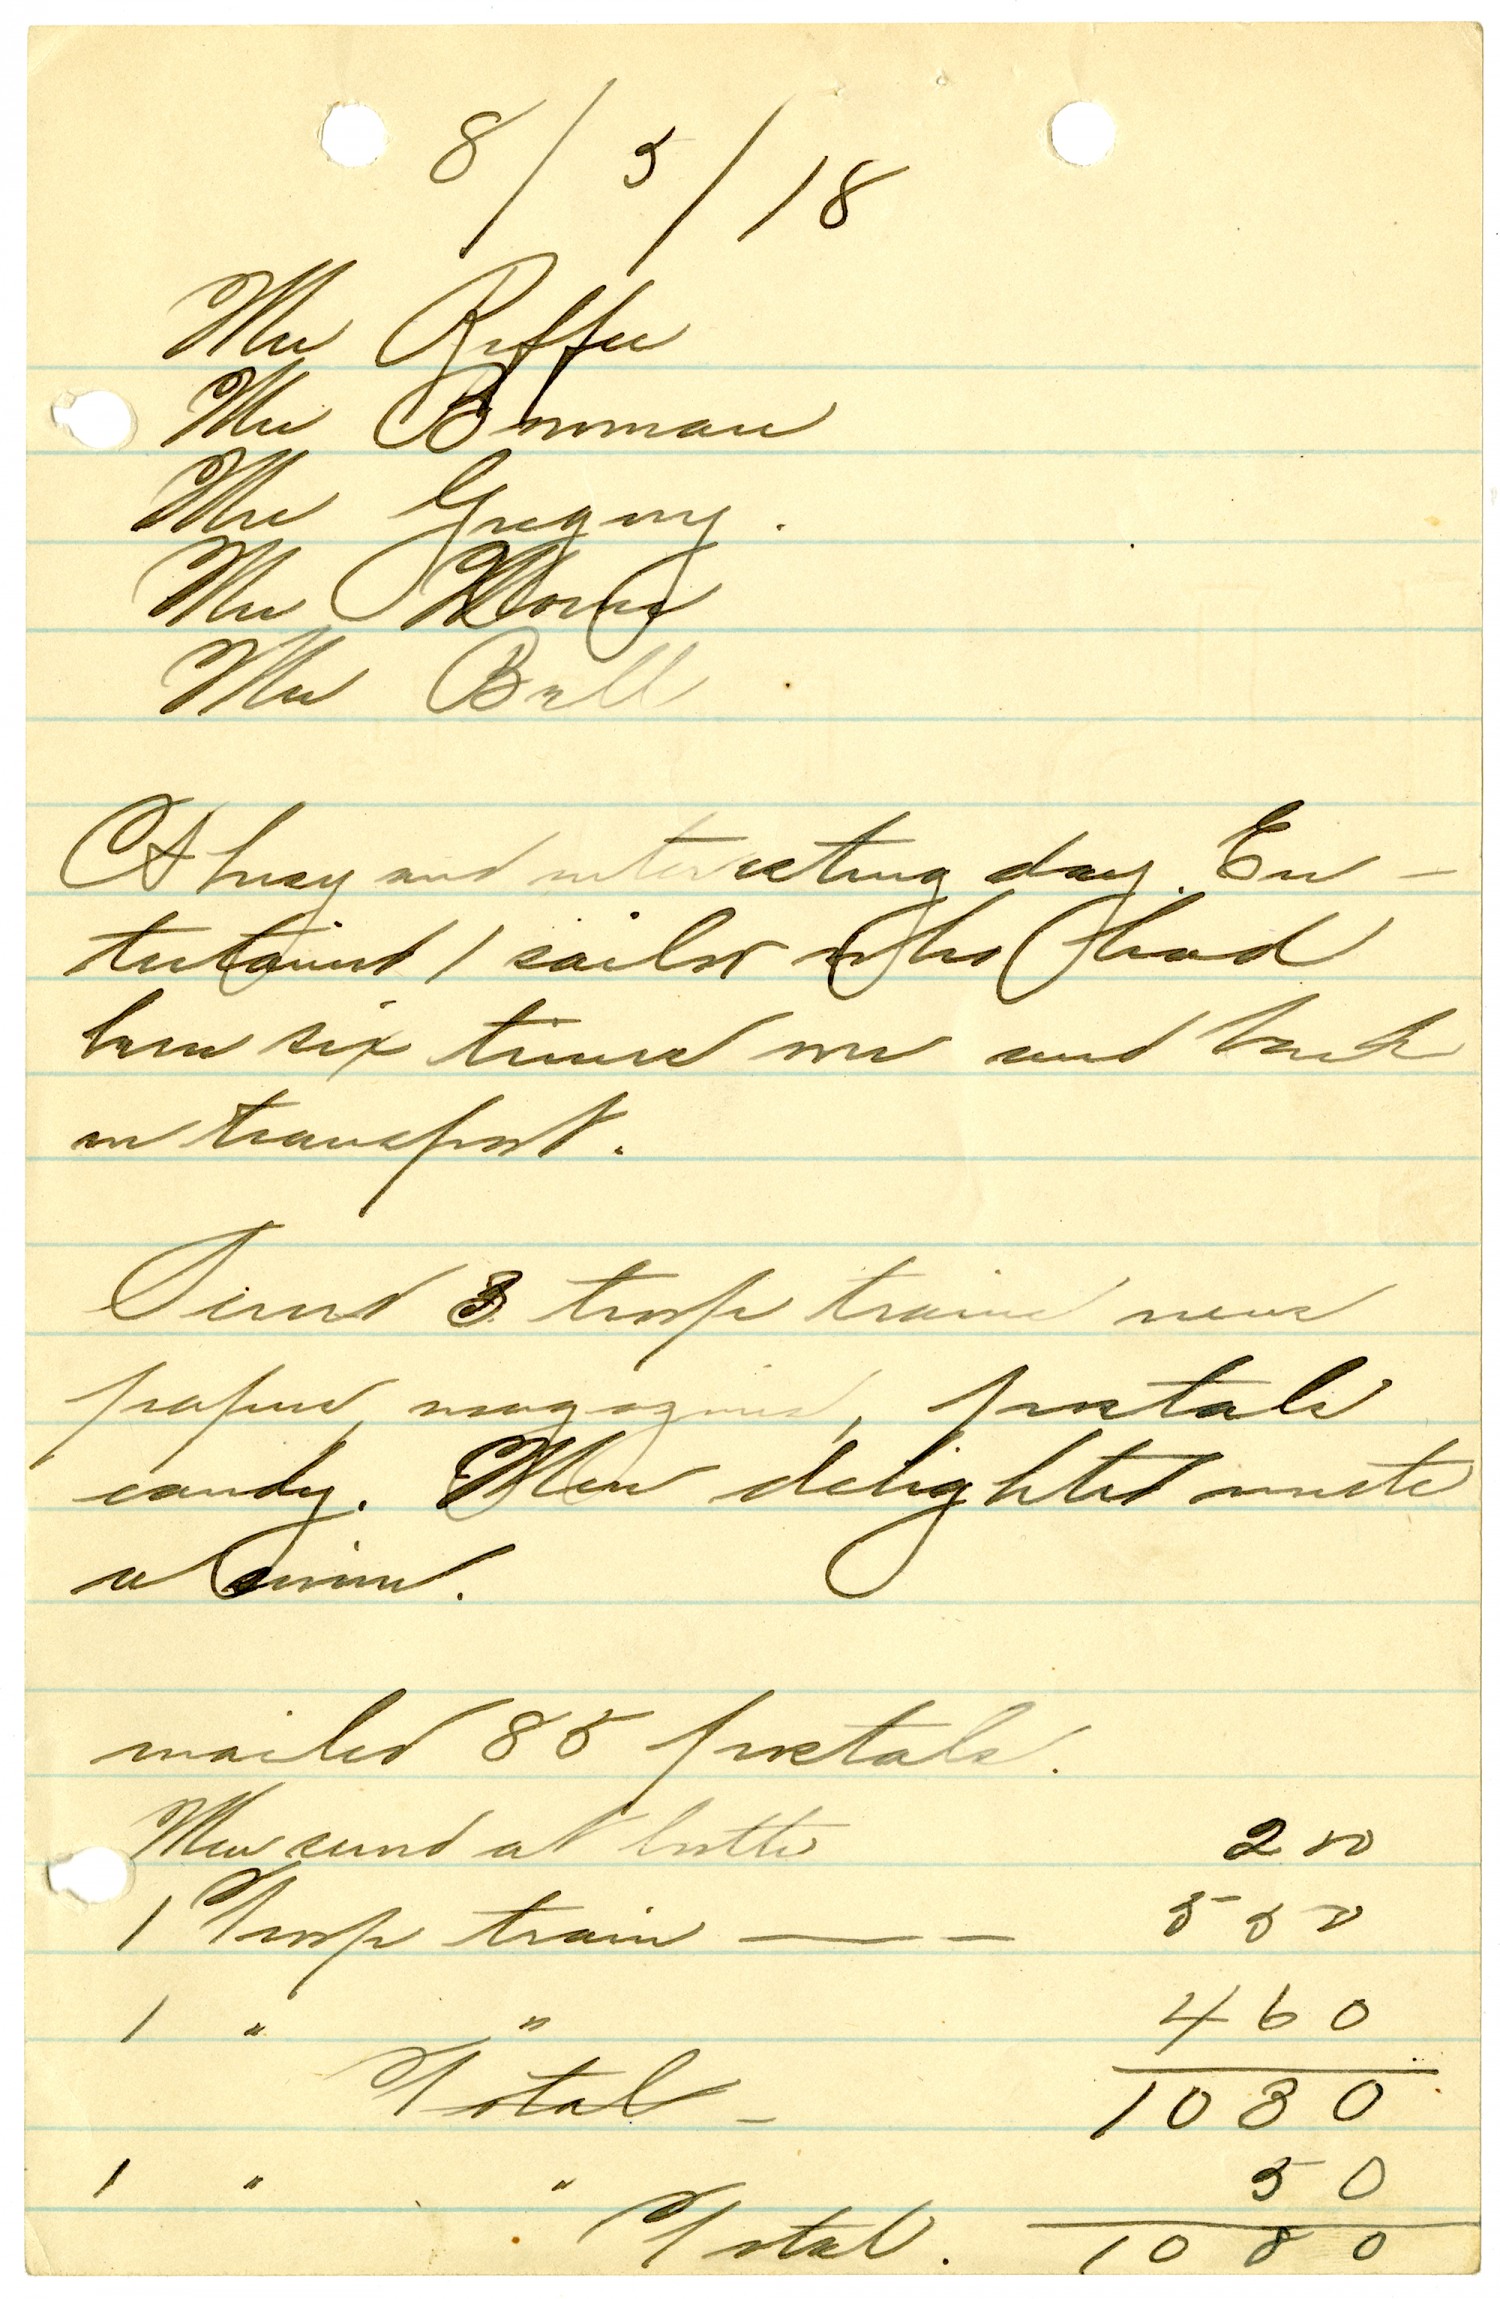 8/5/18
Mrs
Mrs Bowman
Mrs Gregory.
Mrs
Mrs Bell
A busy and interesting day. En -
tertained 1 sailor who had
been six times over and back
on transport.
Served 3 troop trains news
papers, magazines, postals
candy. Men delighted wrote
mailed 85 postals.
Men served at booth 20
1 Troop train — - 550
1 " " 460
Total - 1030
1 " " 50
Total. 1080